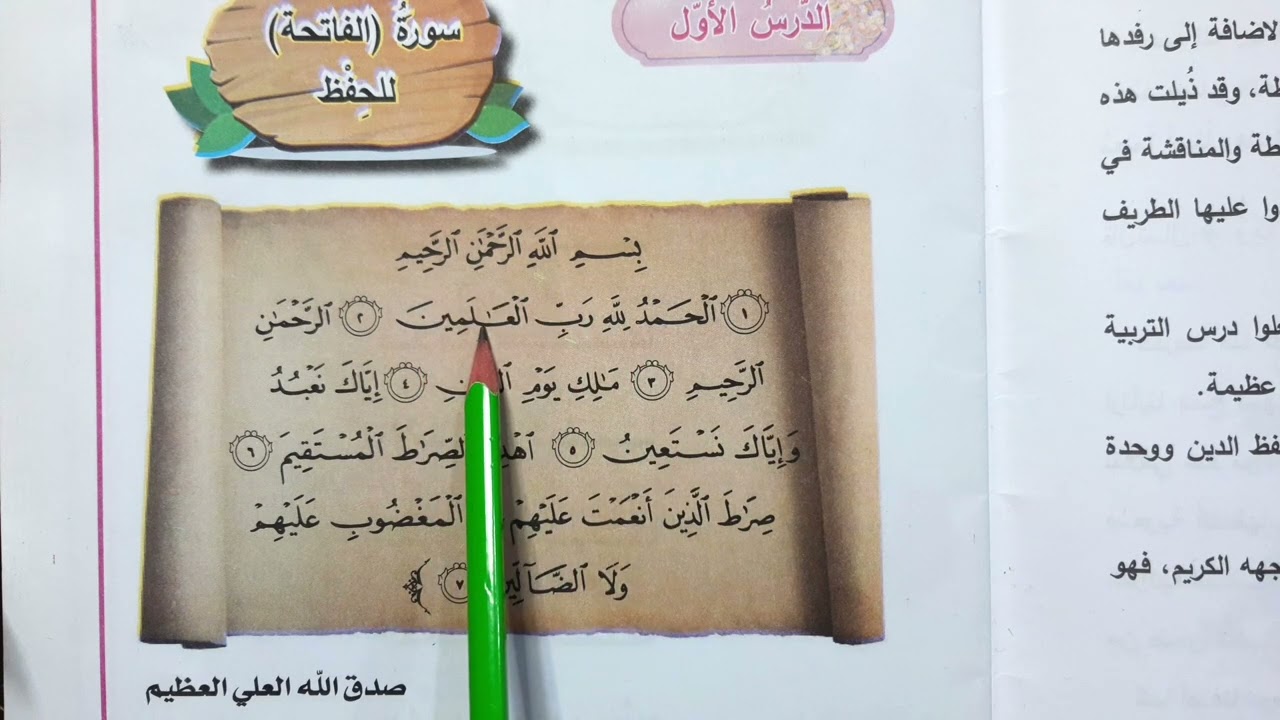 الدَّرسُ الأوّل
سورةُ (الفاتحة)
للحِفْظ
بِسْمِ ٱللَّهِ ٱلرَّحْمَٰنِ ٱلرَّحِيمِ
١ ٱلْحَمْدُ لِلَّهِ رَبِّ ٱلْعَـٰلَمِينَ ٢ ٱلرَّحْمَٰنِ
ٱلرَّحِيمِ ٣ مَـٰلِكِ يَوْمِ ٤ إِيَّاكَ نَعْبُدُ
وَإِيَّاكَ نَسْتَعِينُ ٥ ٱلصِّرَٰطَ ٱلْمُسْتَقِيمَ ٦
صِرَٰطَ ٱلَّذِينَ أَنْعَمْتَ عَلَيْهِمْ ٱلْمَغْضُوبِ عَلَيْهِمْ
وَلَا ٱلضَّآلِّي ٧
صدق الله العلي العظيم
لاضافة إلى رفدها
طة، وقد ذُيلت هذه
طة والمناقشة في
وا عليها الطريف
درس التربية
عظيمة.
فظ الدين ووحدة
جهه الكريم، فهو